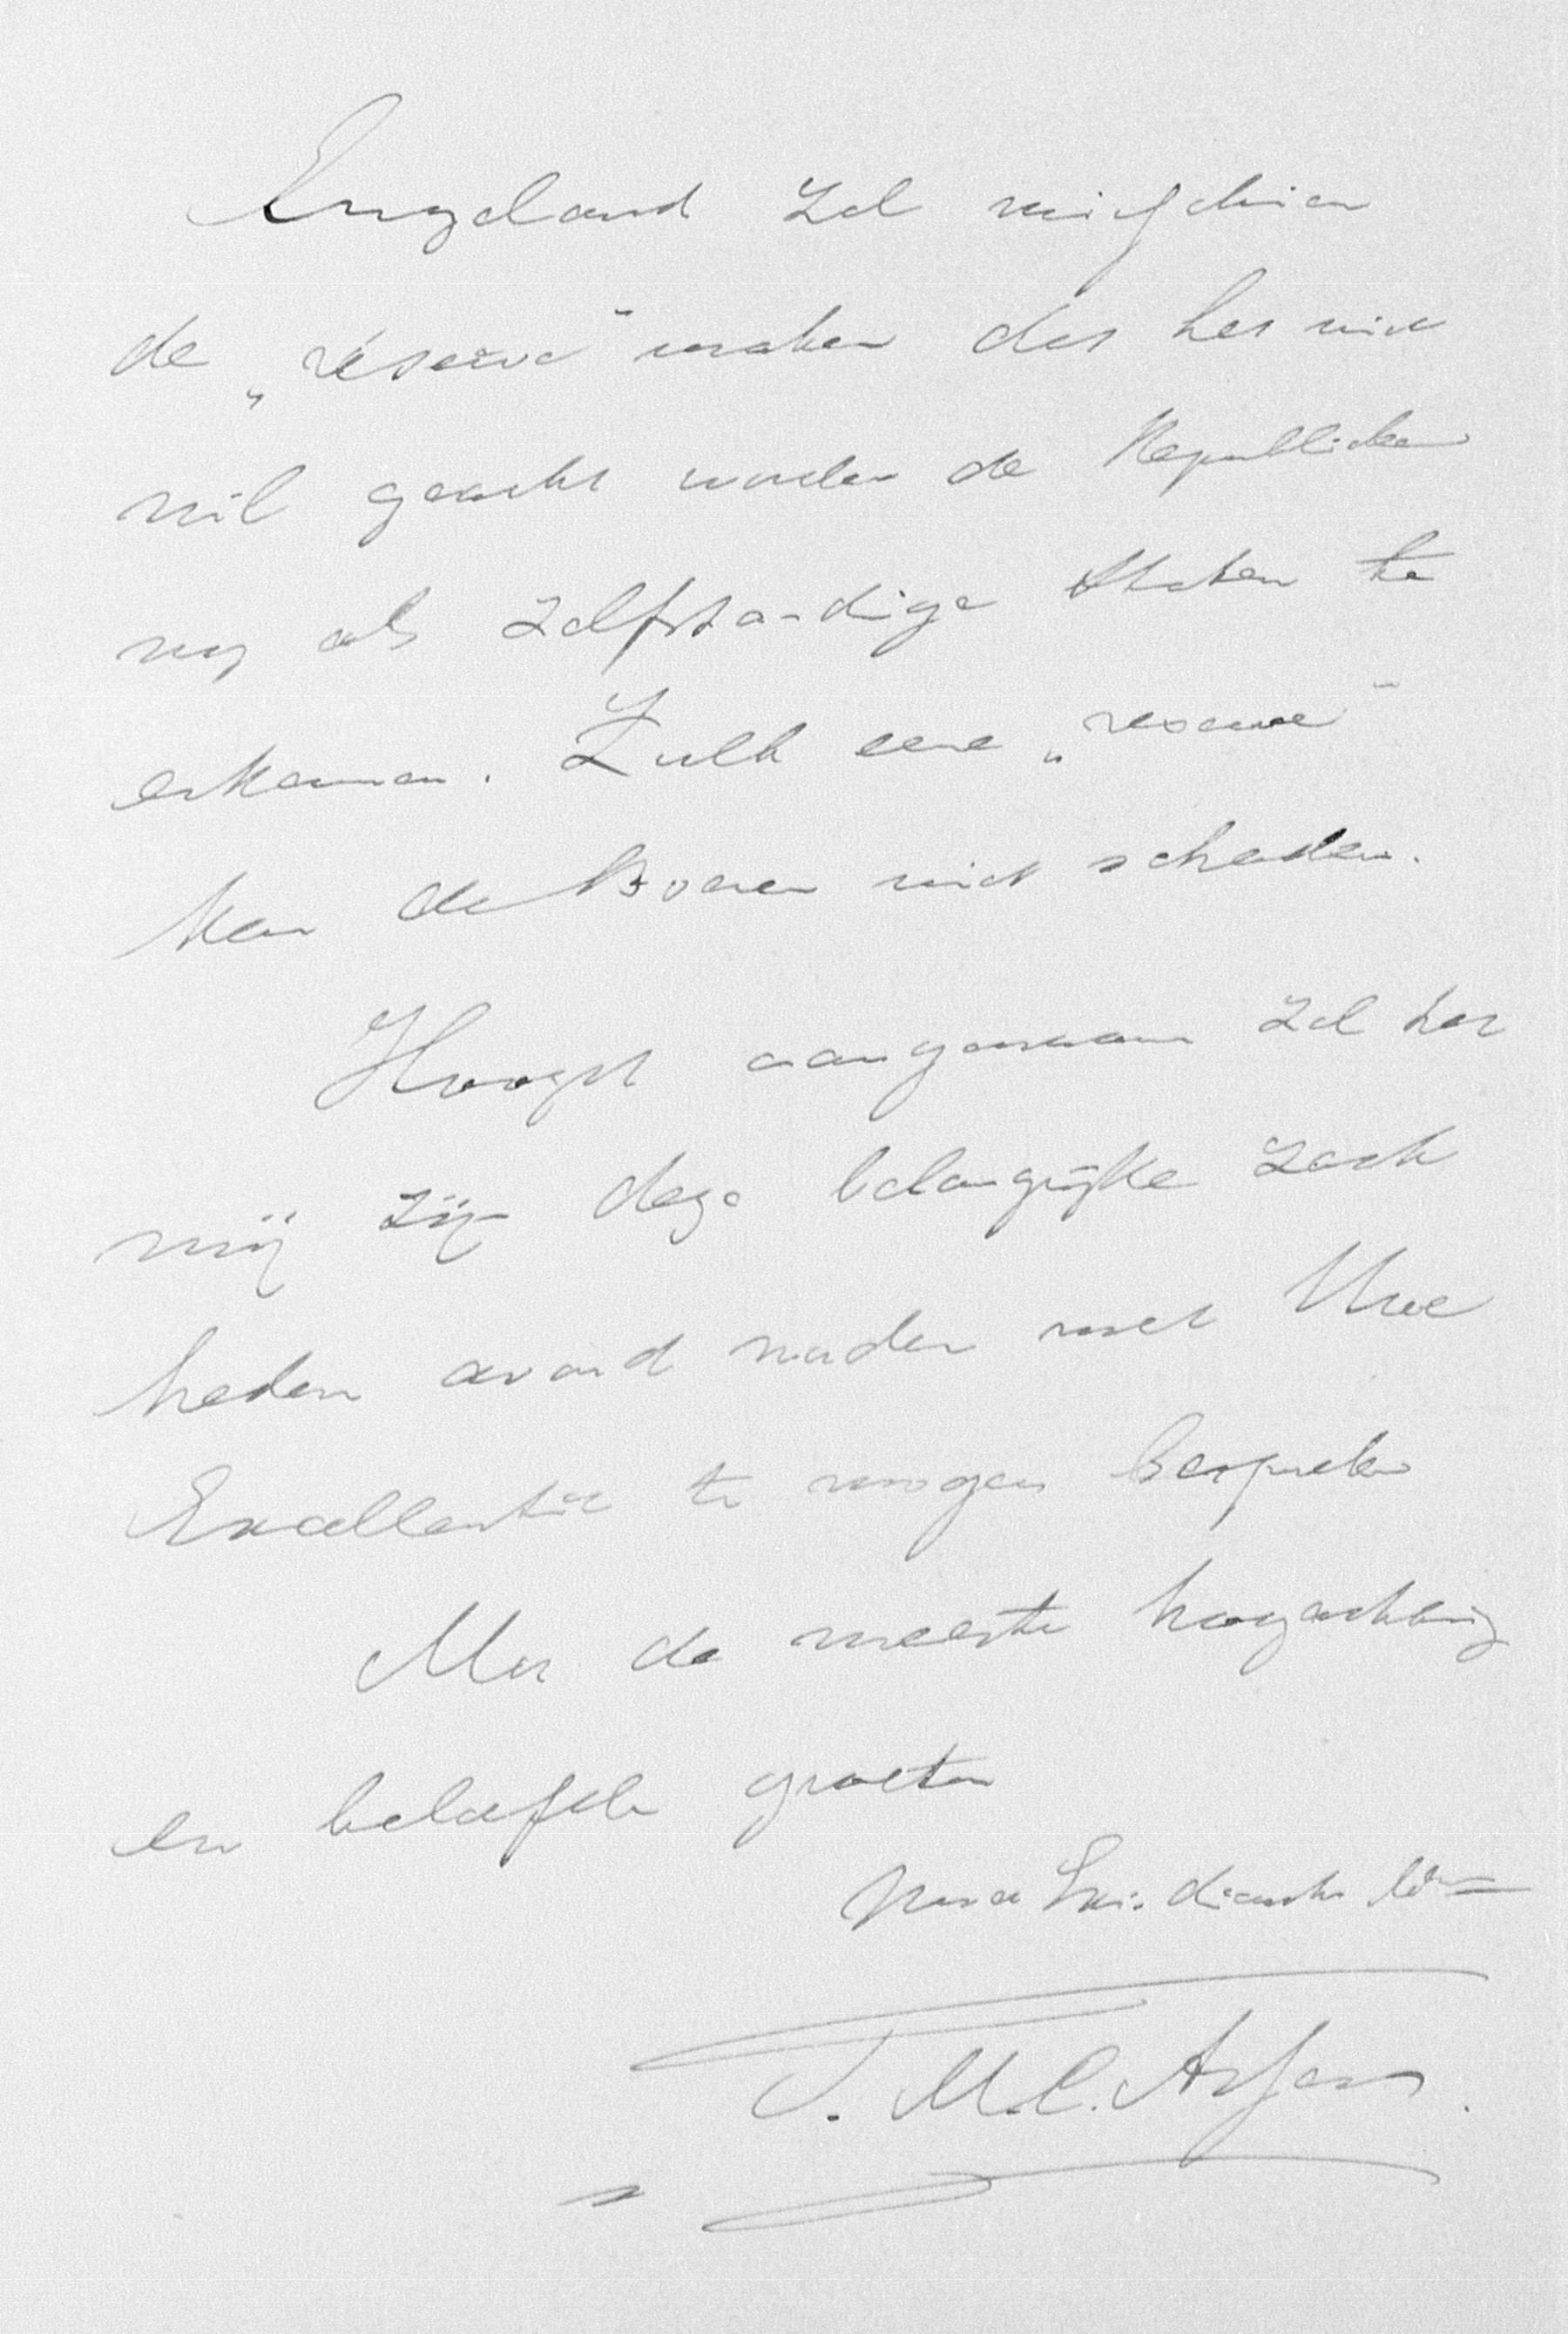 Engeland zal misschien
de „réserve" maken dat het niet
wil geacht worden de Republieken
nog als zelfstandige Staten te
erkennen. Zulk eene „reserve"
kan de Boeren niet schaden.
Hoogst aangenaam zal het
mij zijn deze belangrijke zaak
heden avond nader met Uwe
Excellentie te mogen bespreken
Met de meeste hoogachting
en beleefde groeten
T. M. C. Asser.